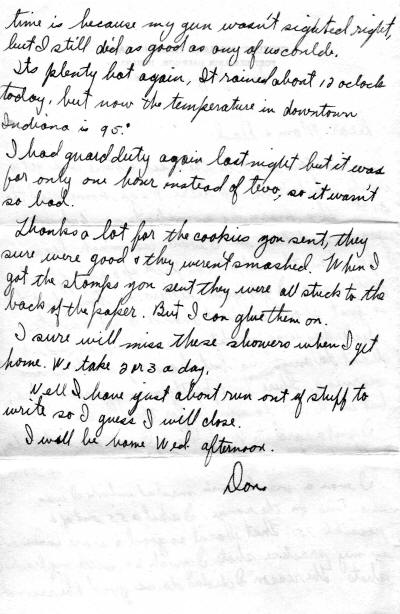 time is because my gun wasn't sighted right,
but I still did as good as any of us could.
Its plenty hot again, It rained about 12 oclock
today, but now the temperature in downtown
Indiana is 95.°
I had guard duty again last night but it was
for only one hour instead of two, so it wasn't
so bad.
Thanks a lot for the cookies you sent, they
sure were good & they weren't smashed. When I
got the stamps you sent they were all stuck to the
back of the paper. But I can glue them on.
I sure will miss these showers when I get
home. We take 2 or 3 a day.
Well I have just about run out of stuff to
write so I guess I will close.
I will be home Wed. afternoon.
Don